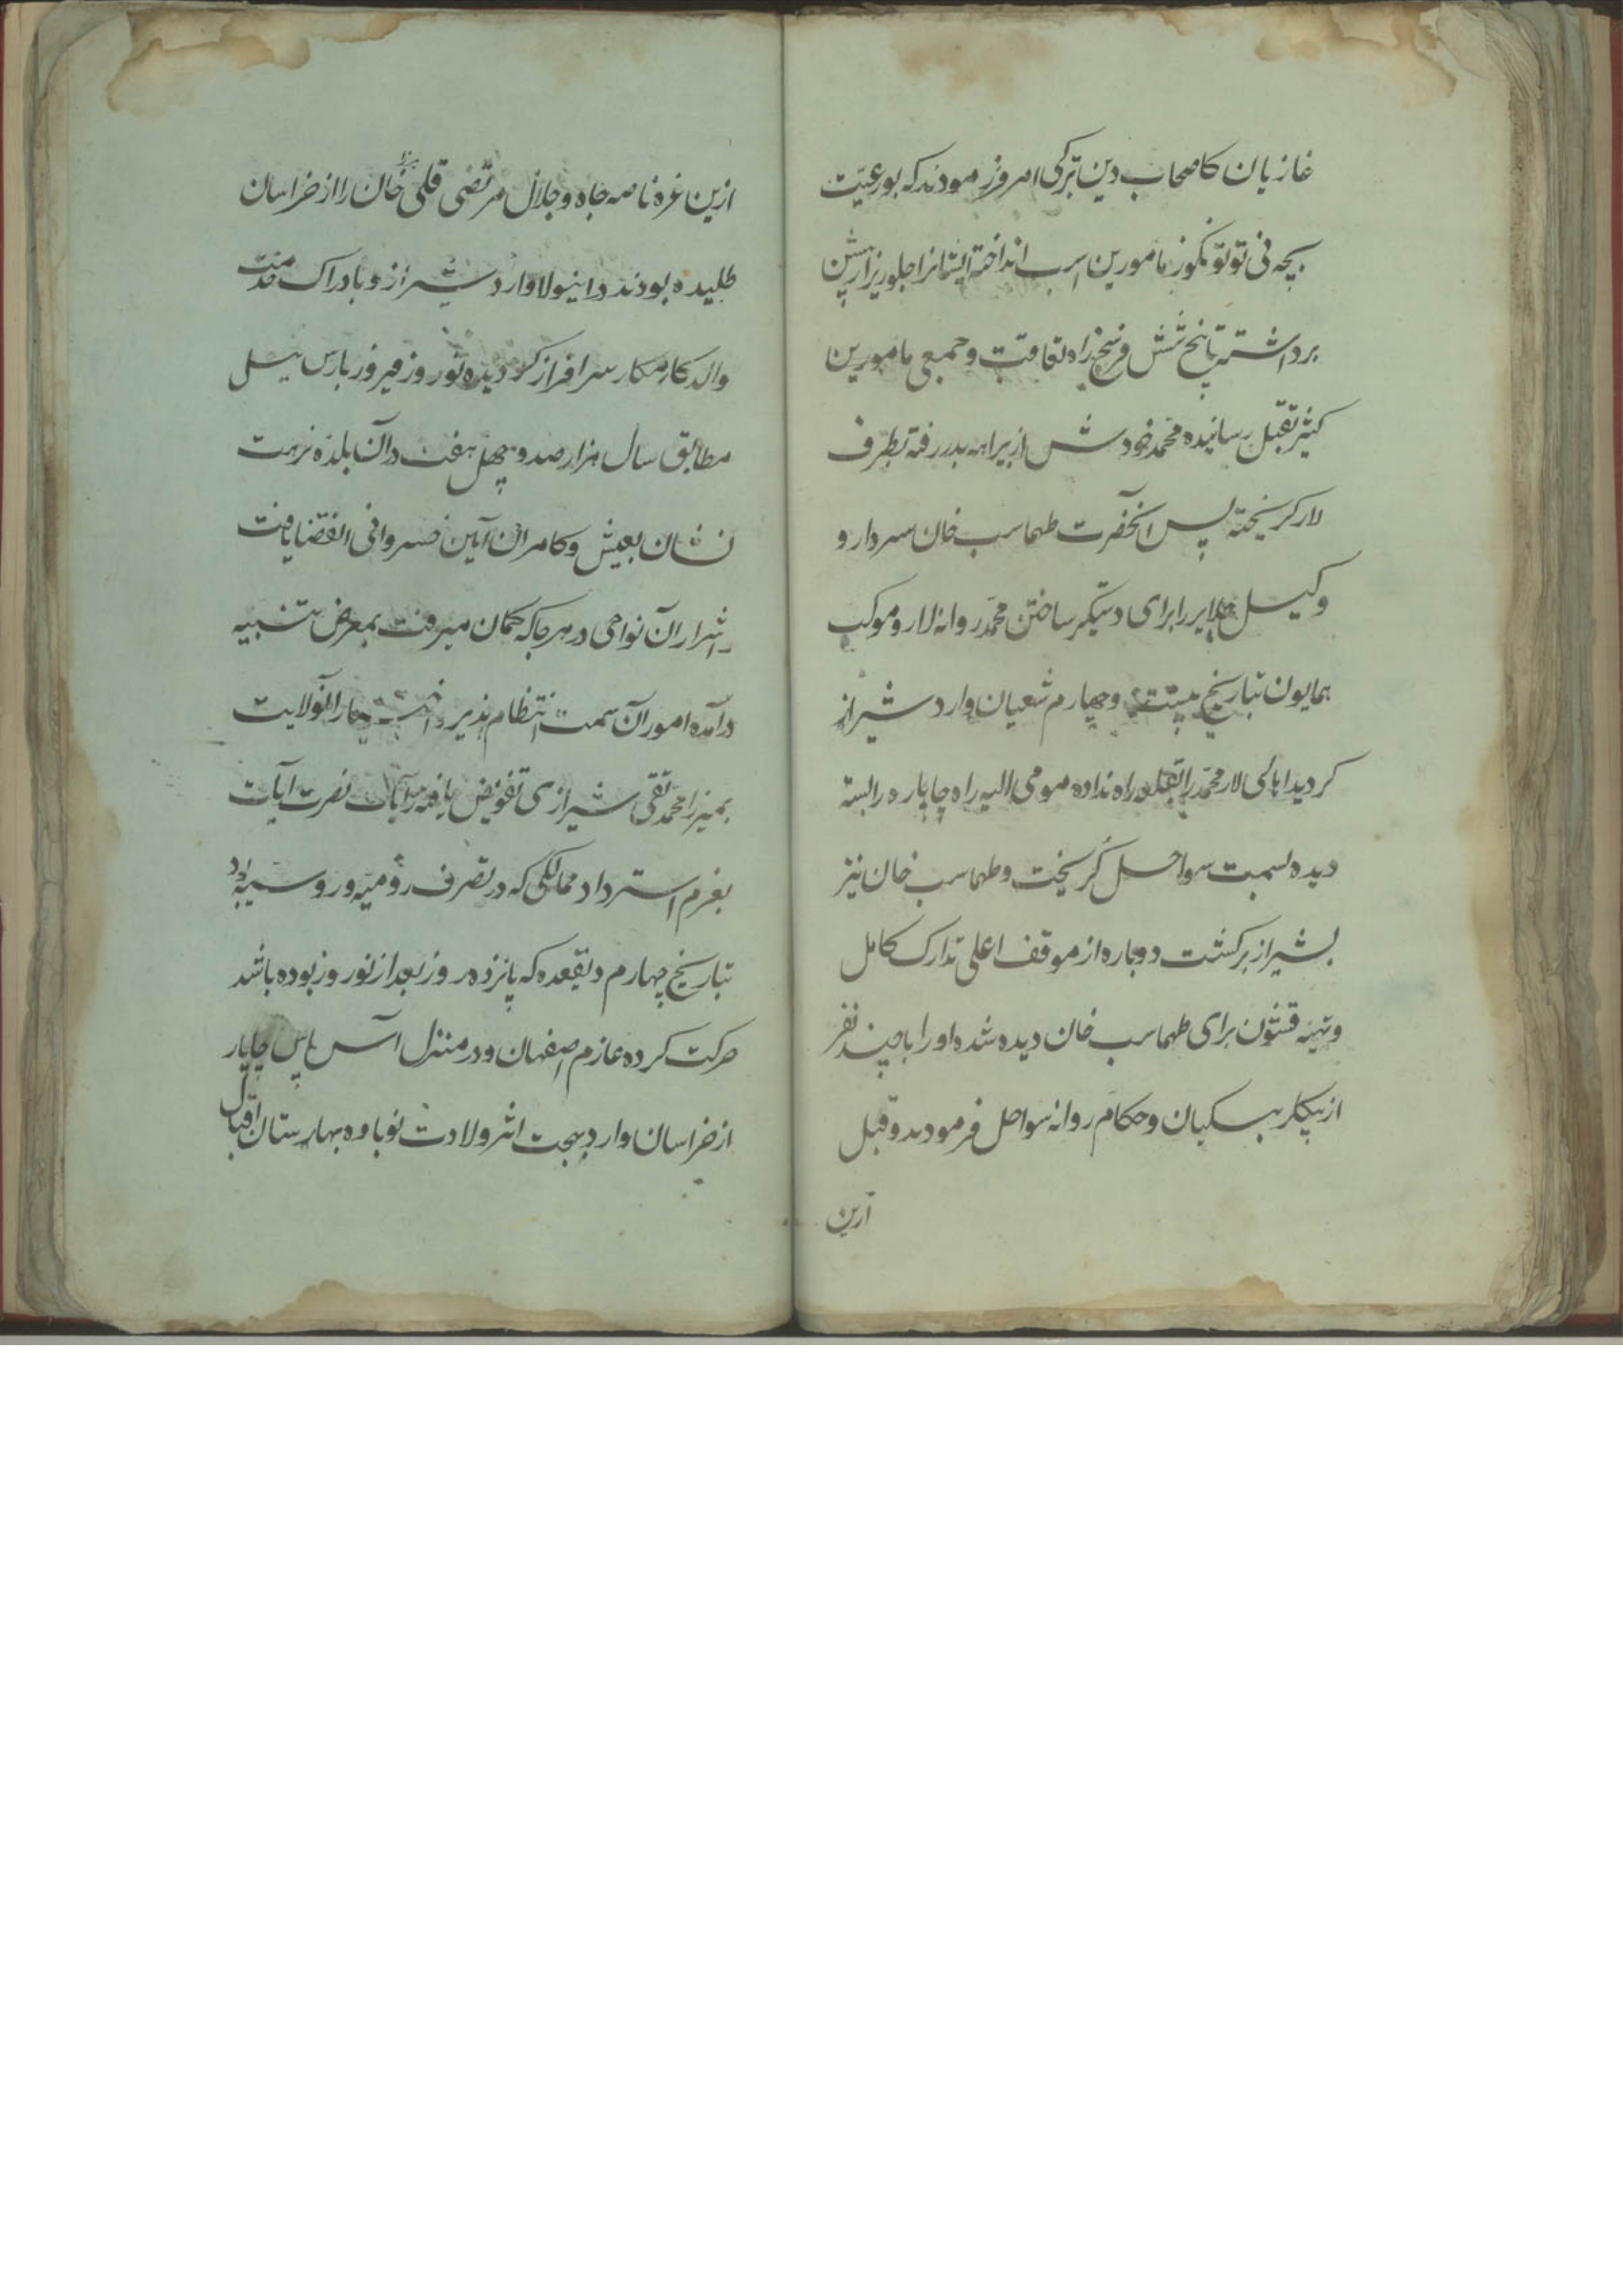 غازیان کاصحاب دین ترکی امروز مودند که بور عیّت
بیچه نی توتو نکوز مامورین اسب انداخته ایشانرا جلوریز از پیش
برداشته تا پنج شش فرسخ راه تعاقب و جمعی مامورین
کثیر بقتل رسانیده محمد خود شش از بیراهه بدر رفته بطرف
لار کریخته پس آنحضرت طهماسب خان سردار و
وکیل را برای دستکیر ساختن محمد روانه لار و موکب
همایون بتاریخ بیست و چهارم شعبان وارد شیراز
کردید اهالی لار محمد را بقلعه راه نداده مومی الیه راه چاپاره را بسته
دیده بسمت سواحل کریخت و طهماسب خان نیز
بشیراز برکشت دوباره از موقف اعلی تدارک کامل
و تهیّه قشون برای طهماسب خان دیده شده او را با چند نفر
از بیکلر بیکیان و حکام روانه سواحل فرمودند و قبل
ازین
ازین غره ناصه جاه و جلال مرتضی قلی خان را از خراسان
طلبیده بودند در اینولا وارد شیراز و بادراک خدمت
والد کامکار سرافراز کردیده نوروز فیروز بارس ییل
مطابق سال هزار صد و چهل هفت در آن بلده نزهت
نشان بعیش و کامرانی آیین خسروانی انقضا یافت
اشرار آن نواحی در هر جا که کمان میرفت بمعرض تنبیه
در آمده امور آن سمت انتظام پذیر و آنولایت
بمیرزا محمد تقی شیرازی تفویض یافته رایات نصرت آیات
بعزم استرداد ممالکی که در تصرف رومیّه و روسیّه بود
بتاریخ چهارم ذیقعده که پانزده روز بعد از نوروز بوده باشد
حرکت کرده عازم اصفهان و در منزل آس پاس چاپار
از خراسان وارد بهجت اثر ولادت نوباوه بهارستان اقبال